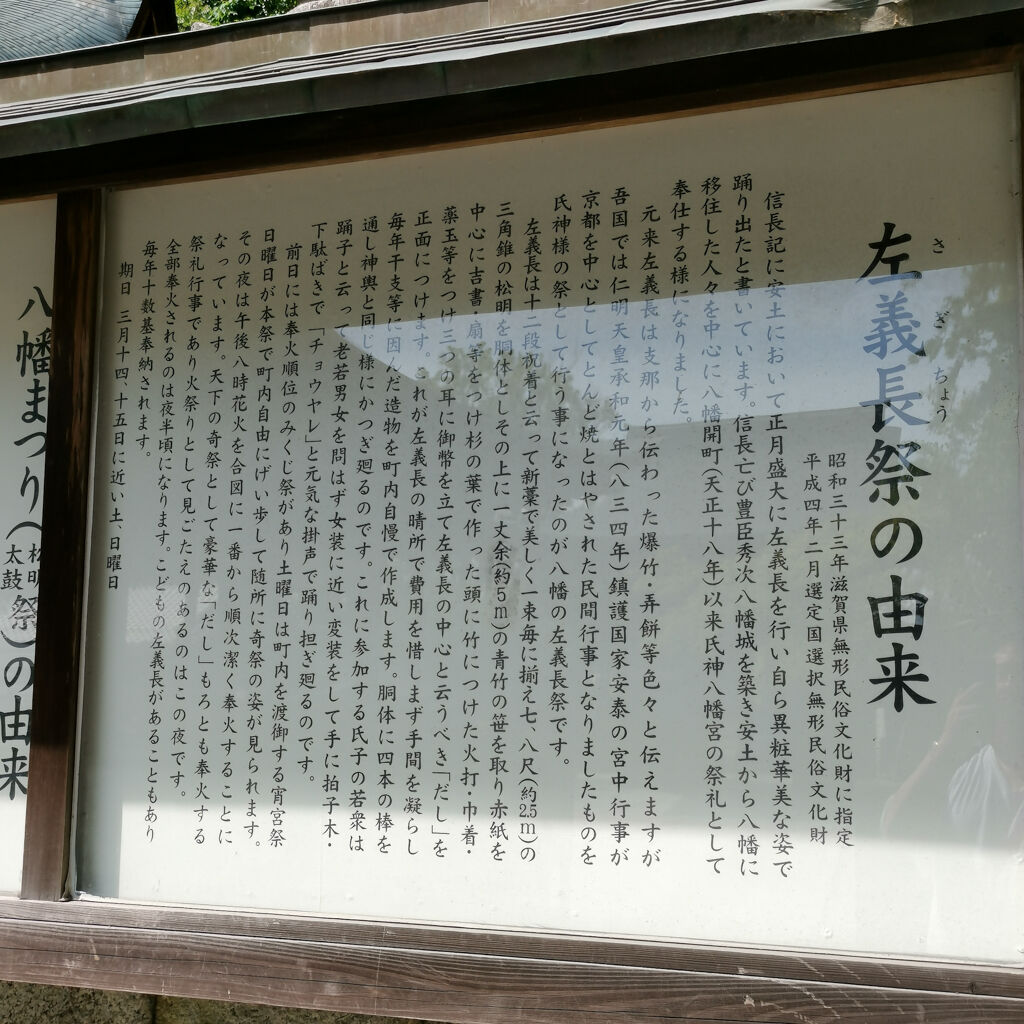 左義長祭の由来
さぎちょう
昭和三十三年滋賀県無形民俗文化財に指定
平成四年二月選定国選択無形民俗文化財
信長記に安土において正月盛大に左義長を行い自ら異粧華美な姿で
踊り出たと書いています。信長亡び豊臣秀次八幡城を築き安土から八幡に
移住した人々を中心に八幡開町(天正十八年)以来氏神八幡宮の祭礼として
奉仕する様になりました。
元来左義長は支那から伝わった爆竹・弄餅等色々と伝えますが
吾国では仁明天皇承和元年(八三四年)鎮護国家安泰の宮中行事が
京都を中心としてとんど焼とはやされた民間行事となりましたものを
氏神様の祭として行う事になったのが八幡の左義長祭です。
左義長は十二段祝着と云って新藁で美しく一束毎に揃え七、八尺(約2.5m)の
三角錐の松明を胴体としその上に一丈余(約5m)の青竹の笹を取り赤紙を
中心に吉書・扇等をつけ杉の葉で作った頭に竹につけた火打・巾着・
薬玉等をつけ三つの耳に御幣を立て左義長の中心と云うべき「だし」を
正面につけます。これが左義長の晴所で費用を惜しまず手間を凝らし
毎年干支等に因んだ造物を町内自慢で作成します。胴体に四本の棒を
通し神輿と同じ様にかつぎ廻るのです。これに参加する氏子の若衆は
踊子と云って老若男女を問はず女装に近い変装をして手に拍子木・
下駄ばきで「チョウヤレ」と元気な掛声で踊り担ぎ廻るのです。
前日には奉火順位のみくじ祭があり土曜日は町内を渡御する宵宮祭
日曜日が本祭で町内自由にげい歩して随所に奇祭の姿が見られます。
その夜は午後八時花火を合図に一番から順次潔く奉火することに
なっています。天下の奇祭として豪華な「だし」もろとも奉火する
祭礼行事であり火祭りとして見ごたえのあるのはこの夜です。
全部奉火されるのは夜半頃になります。こどもの左義長があることもあり
毎年十数基奉納されます。
期日 三月十四、十五日に近い土、日曜日
八幡まつり(松明太鼓祭)の由来